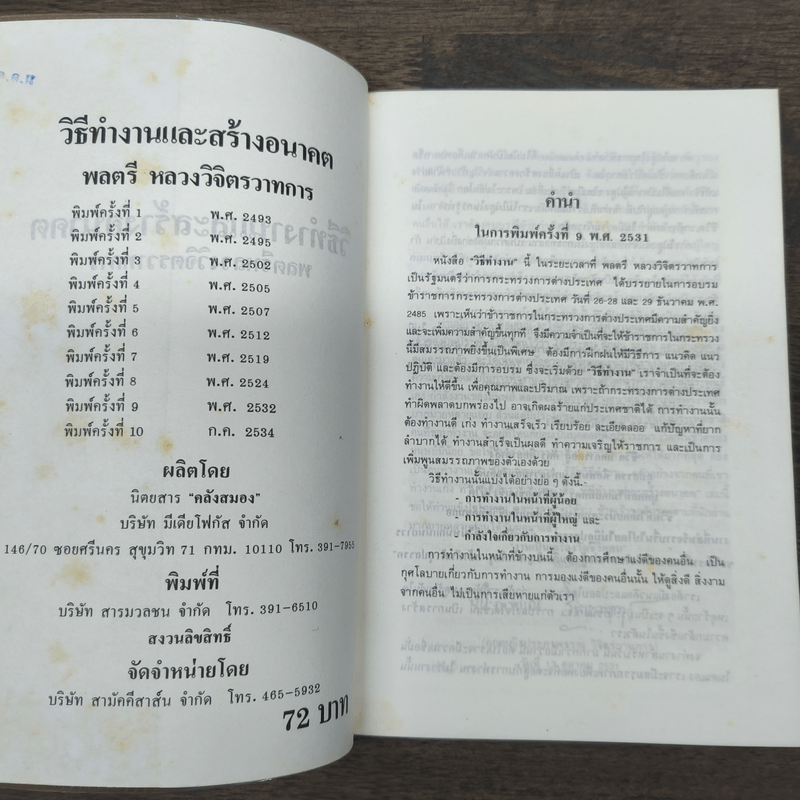 วิธีทำงานและสร้างอนาคต
พลตรี หลวงวิจิตรวาทการ
พิมพ์ครั้งที่ 1 พ.ศ. 2493
พิมพ์ครั้งที่ 2 พ.ศ. 2495
พิมพ์ครั้งที่ 3 พ.ศ. 2502
พิมพ์ครั้งที่ 4 พ.ศ. 2505
พิมพ์ครั้งที่ 5 พ.ศ. 2507
พิมพ์ครั้งที่ 6 พ.ศ. 2512
พิมพ์ครั้งที่ 7 พ.ศ. 2519
พิมพ์ครั้งที่ 8 พ.ศ. 2524
พิมพ์ครั้งที่ 9 พ.ศ. 2532
พิมพ์ครั้งที่ 10 ก.ค. 2534
ผลิตโดย
นิตยสาร "คลังสมอง"
บริษัท มีเดียโฟกัส จำกัด
146/70 ซอยศรีนคร สุขุมวิท 71 กทม. 10110 โทร. 391-7955
พิมพ์ที่
บริษัท สารมวลชน จำกัด โทร. 391-6510
สงวนลิขสิทธิ์
จัดจำหน่ายโดย
บริษัท สามัคคีสาส์น จำกัด โทร. 465-5932
72 บาท
คำนำ
ในการพิมพ์ครั้งที่ 9 พ.ศ. 2531
หนังสือ "วิธีทำงาน" นี้ ในระยะเวลาที่ พลตรี หลวงวิจิตรวาทการ
เป็นรัฐมนตรีว่าการกระทรวงการต่างประเทศ ได้บรรยายในการอบรม
ข้าราชการกระทรวงการต่างประเทศ วันที่ 26-28 และ 29 ธันวาคม พ.ศ.
2485 เพราะเห็นว่าข้าราชการในกระทรวงการต่างประเทศมีความสำคัญยิ่ง
และจะเพิ่มความสำคัญขึ้นทุกที จึงมีความจำเป็นที่จะให้ข้าราชการในกระทรวง
นี้มีสมรรถภาพยิ่งขึ้นเป็นพิเศษ ต้องมีการฝึกฝนให้มีวิธีการ แนวคิด แนว
ปฏิบัติ และต้องมีการอบรม ซึ่งจะเริ่มด้วย "วิธีทำงาน" เราจำเป็นที่จะต้อง
ทำงานให้ดีขึ้น เพื่อคุณภาพและปริมาณ เพราะถ้ากระทรวงการต่างประเทศ
ทำผิดพลาดบกพร่องไป อาจเกิดผลร้ายแก่ประเทศชาติได้ การทำงานนั้น
ต้องทำงานดี เก่ง ทำงานเสร็จเร็ว เรียบร้อย ละเอียดลออ แก้ปัญหาที่ยาก
ลำบากได้ ทำงานสำเร็จเป็นผลดี ทำความเจริญให้ราชการ และเป็นการ
เพิ่มพูนสมรรถภาพของตัวเองด้วย
วิธีทำงานนั้นแบ่งได้อย่างย่อ ๆ ดังนี้.-
- การทำงานในหน้าที่ผู้น้อย
- การทำงานในหน้าที่ผู้ใหญ่ และ
- กำลังใจเกี่ยวกับการทำงาน
การทำงานในหน้าที่ข้างบนนี้ ต้องการศึกษาแง่ดีของคนอื่น เป็น
กุศโลบายเกี่ยวกับการทำงาน การมองแง่ดีของคนอื่นนั้น ให้ดูสิ่งดี สิ่งงาม
จากคนอื่น ไม่เป็นการเสียหายแก่ตัวเรา